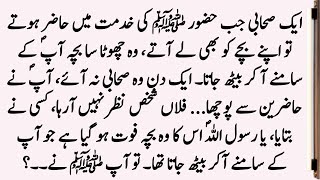 ایک صحابی جب حضور ﷺ کی خدمت میں حاضر ہوتے
تو اپنے بچے کو بھی لے آتے، وہ چھوٹا سا بچہ آپؐ کے
سامنے آ کر بیٹھ جاتا۔ ایک دن وہ صحابی نہ آئے، آپؐ نے
حاضرین سے پوچھا... فلاں شخص نظر نہیں آرہا، کسی نے
بتایا، یا رسول اللہؐ اس کا وہ بچہ فوت ہو گیا ہے جو آپ
کے سامنے آ کر بیٹھ جاتا تھا۔ تو آپ ﷺ نے۔۔۔؟